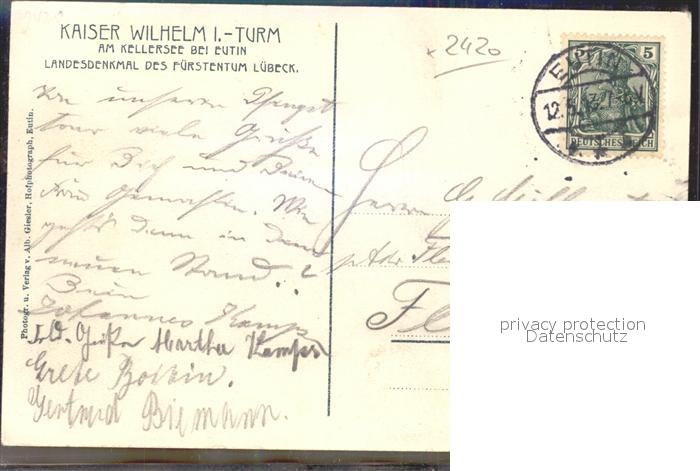 KAISER WILHELM I.-TURM
AM KELLERSEE BEI EUTIN
LANDESDENKMAL DES FÜRSTENTUM LÜBECK.
2420
5
EUTIN
12.5.
DEUTSCHES REICH
Photogr. u. Verlag v. Alb. Giesler, Hofphotograph, Eutin.
unseren Pfingst
tour viele Grüße
für Dich und Deine
Frau Gemahlin. Wie
geht's denn in dem
neuen Stand..?
Dein
Johannes Kamps
Martha Kamps
Grete
Gertrud Biemann.
Herrn
Fle
privacy protection
Datenschutz